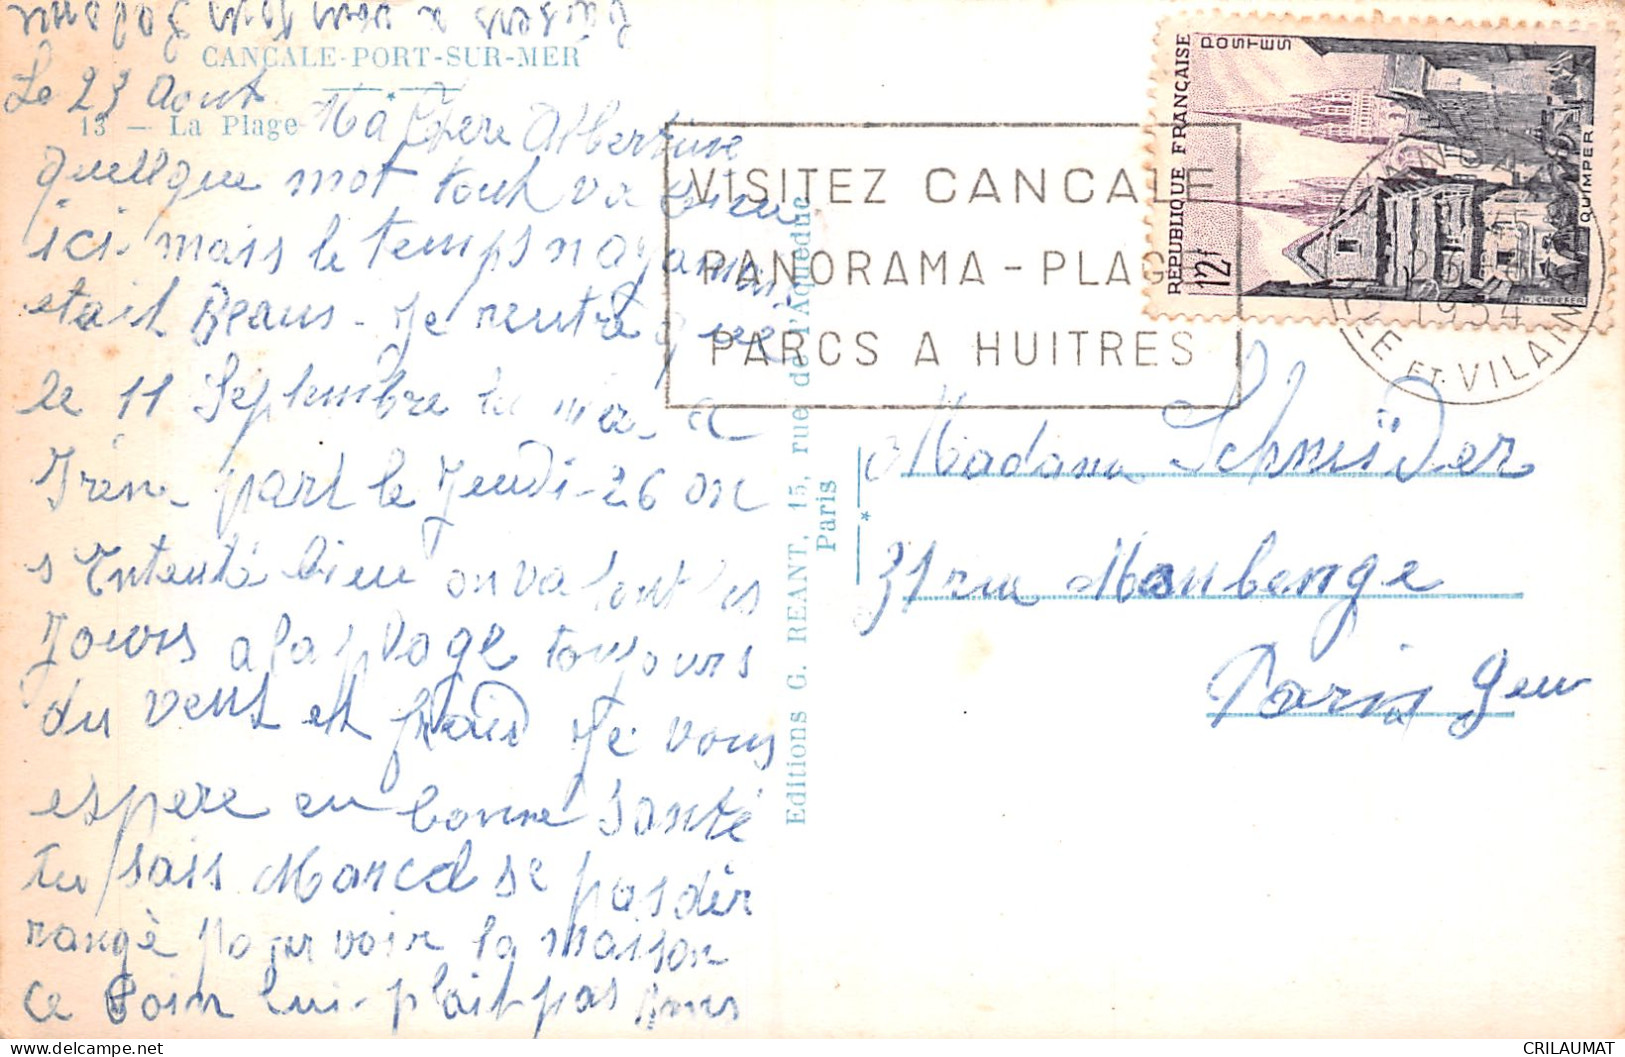 CANCALE-PORT-SUR-MER
13 — La Plage
Le 23 Aout
Ma Chere Albertine
quellque mot tout va bien
ici. mais le temps n a jamais
etait Beaus - Je rentre
le 11 Septembre
Irène part le Jeudi - 26 on
s Entente bien on va tout les
Jours a la plage toujours
du vent et fraid Je vous
espere en bonne Santé
tu sais Marcel se pas dér
rangè voir la maison
ce Coin lui - plait pas
Editions G. REANT, 15, rue de l'Aqueduc
Paris
VISITEZ CANCALE
PANORAMA - PLAGE
PARCS A HUITRES
REPUBLIQUE FRANÇAISE
POSTES
12F
QUIMPER
H. CHEFFER
CANCALE
23
1954
ILLE ET VILAINE
Madame Schmïder
31 rue Maubenge
Paris 9eu
CRILAUMAT